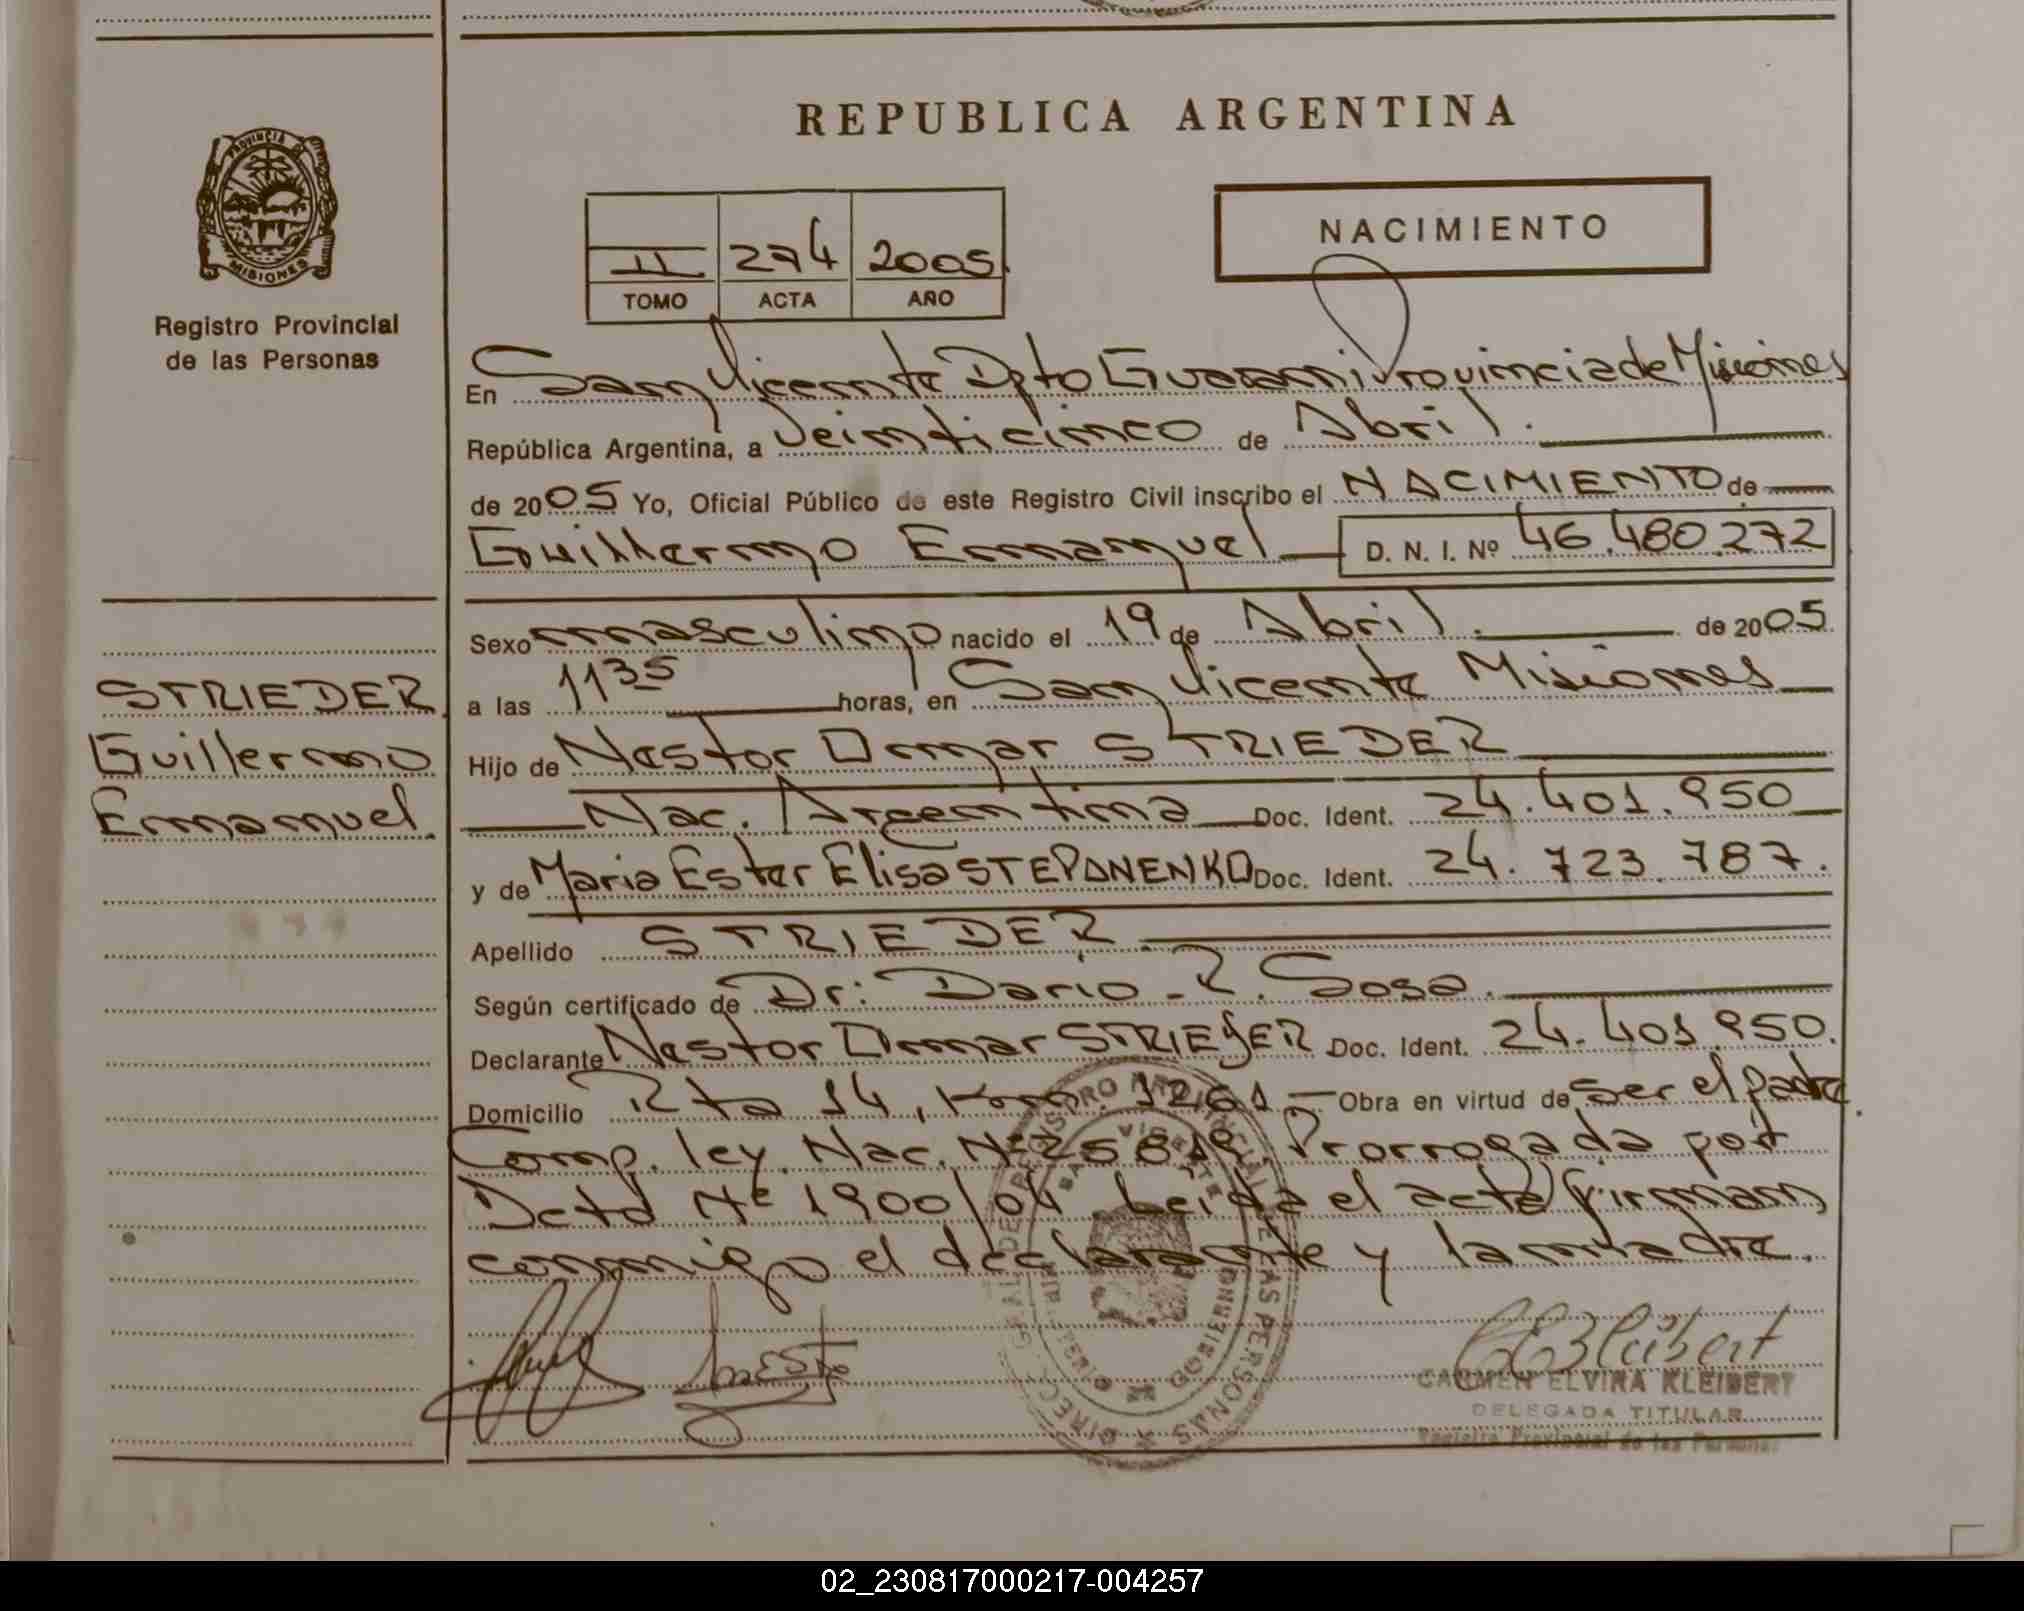 REPUBLICA ARGENTINA
PROVINCIA DE
MISIONES
Registro Provincial
de las Personas
II 274 2005
TOMO ACTA AÑO
NACIMIENTO
En San Vicente Dpto Guarani Provincia de Misiones
República Argentina, a Veinticinco de Abril.
de 2005 Yo, Oficial Público de este Registro Civil inscribo el NACIMIENTO de
Guillermo Emanuel D. N. I. Nº 46.480.272
Sexo masculino nacido el 19 de Abril. de 2005.
a las 1135 horas, en San Vicente Misiones
Hijo de Nestor Omar STRIEDER
Nac. Argentina Doc. Ident. 24.401.950
y de Maria Ester Elisa STEPANENKO Doc. Ident. 24.723.787.
Apellido STRIEDER
Según certificado de Dr. Dario R. Sosa.
Declarante Nestor Omar STRIEDER Doc. Ident. 24.401.950.
Domicilio Rta 14, Km 1261 - Obra en virtud de ser el padre.
Comp. ley. Nac. Nº 25819. Prorrogada por
Dcto Nº 1900/04 Leida el acta firman
conmigo el declarante y la madre.
STRIEDER
Guillermo
Emanuel.
CARMEN ELVIRA KLEIBERT
DELEGADA TITULAR
Registro Provincial de las Personas
02_230817000217-004257